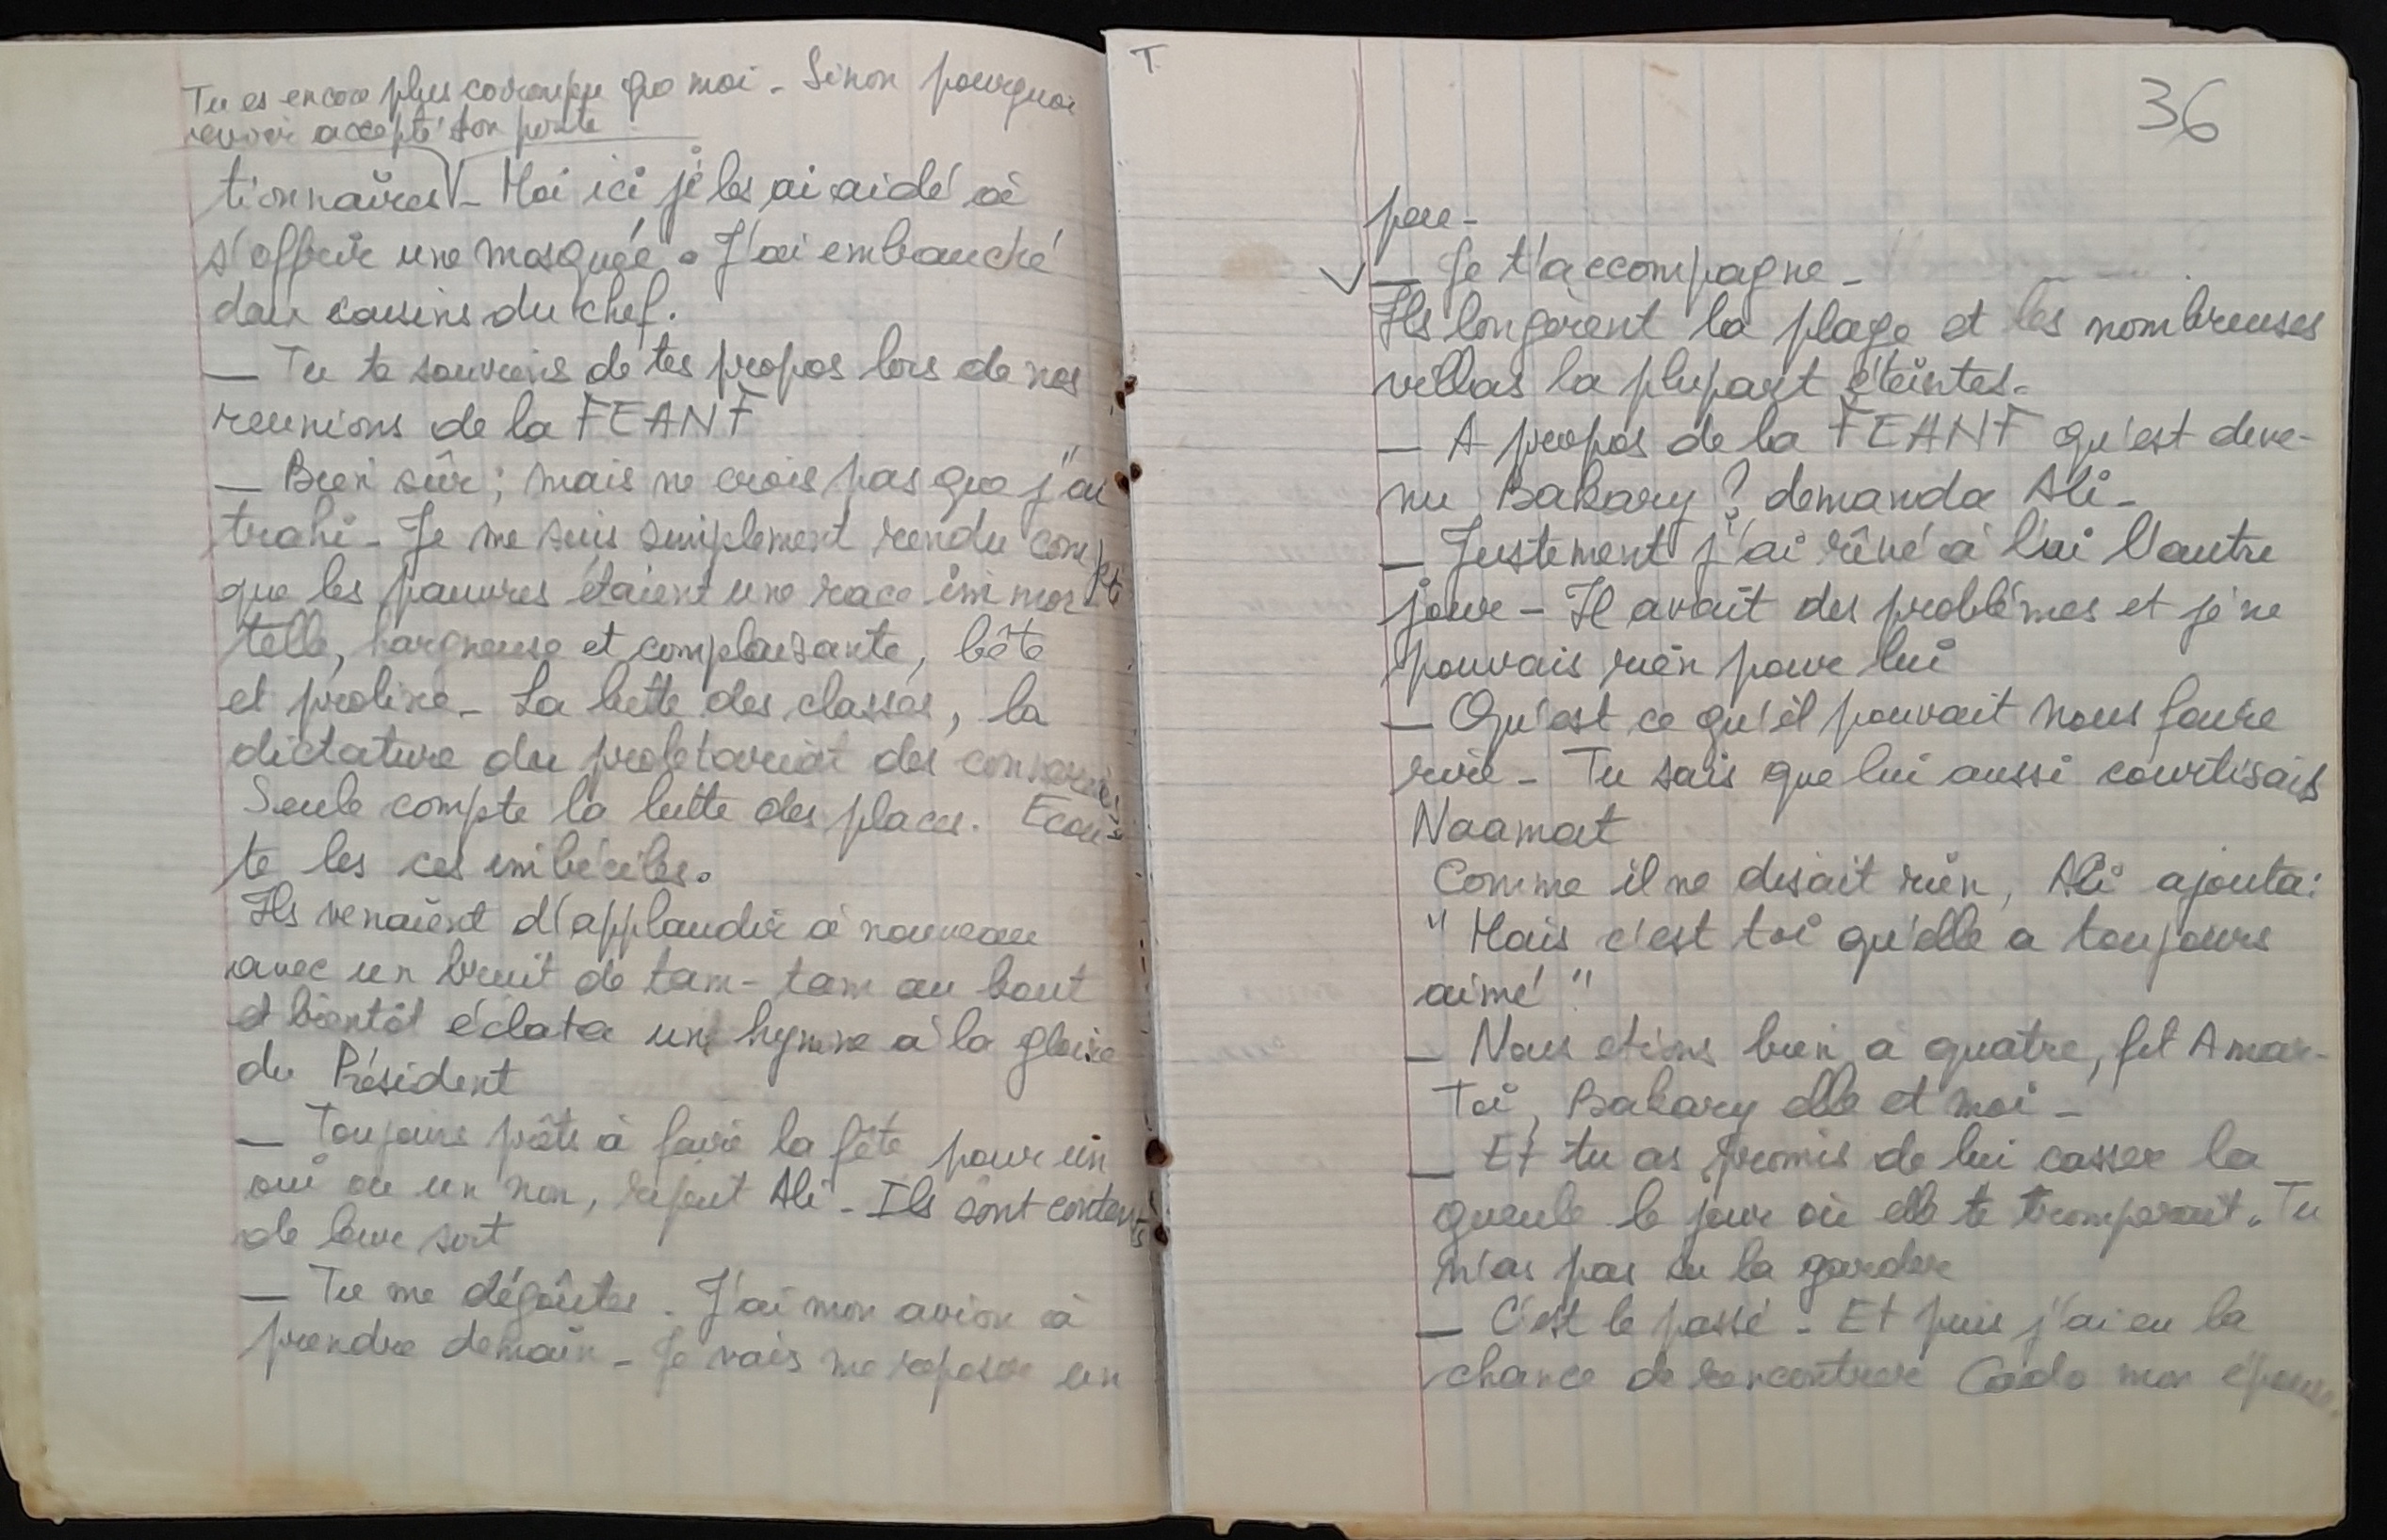 Tu es encore plus corrompu que moi - Sinon pourquoi
avoir accepté ton poste
tionnaires - Moi ici je les ai aidé à
s'offrir une mosquée. J'ai embauché
deux cousins du chef.
— Tu te souviens de tes propos lors de nos
reunions de la FEANF
— Bien sûr ; mais ne crois pas que j'ai
trahi - Je me suis simplement rendu compte
que les pauvres étaient une race immor-
telle, hargneuse et complaisante, bête
et prolixe - La lutte des classes, la
dictature du proletariat des conneries
Seule compte la lutte des places. Ecou-
te les ces imbéciles.
Ils venaient d'applaudir à nouveau
avec un bruit de tam-tam au bout
et bientôt éclata un hymne à la gloire
du Président
— Toujours prêts à faire la fête pour un
oui ou un non, reprit Ali - Ils sont contents
de leur sort
— Tu me dégoûtes. J'ai mon avion à
prendre demain - Je vais me reposer un
T.
36
peu -
— Je t'accompagne -
Ils longèrent la plage et les nombreuses
villas la plupart éteintes -
— A propos de la FEANF qu'est deve-
nu Bakary ? demanda Ali -
— Justement j'ai rêvé à lui l'autre
jour - Il avait des problèmes et je ne
pouvais rien pour lui
— Qu'est ce qu'il pouvait nous faire
rire - Tu sais que lui aussi courtisais
Naamat
Comme il ne disait rien, Ali ajouta :
" Mais c'est toi qu'elle a toujours
aimé "
— Nous etions bien à quatre, fit Amar -
Toi, Bakary elle et moi -
— Et tu as promis de lui casser la
gueule le jour où elle te tromperait. Tu
n'as pas su la garder
— C'est le passé - Et puis j'ai eu la
chance de rencontrer Cado mon épouse.